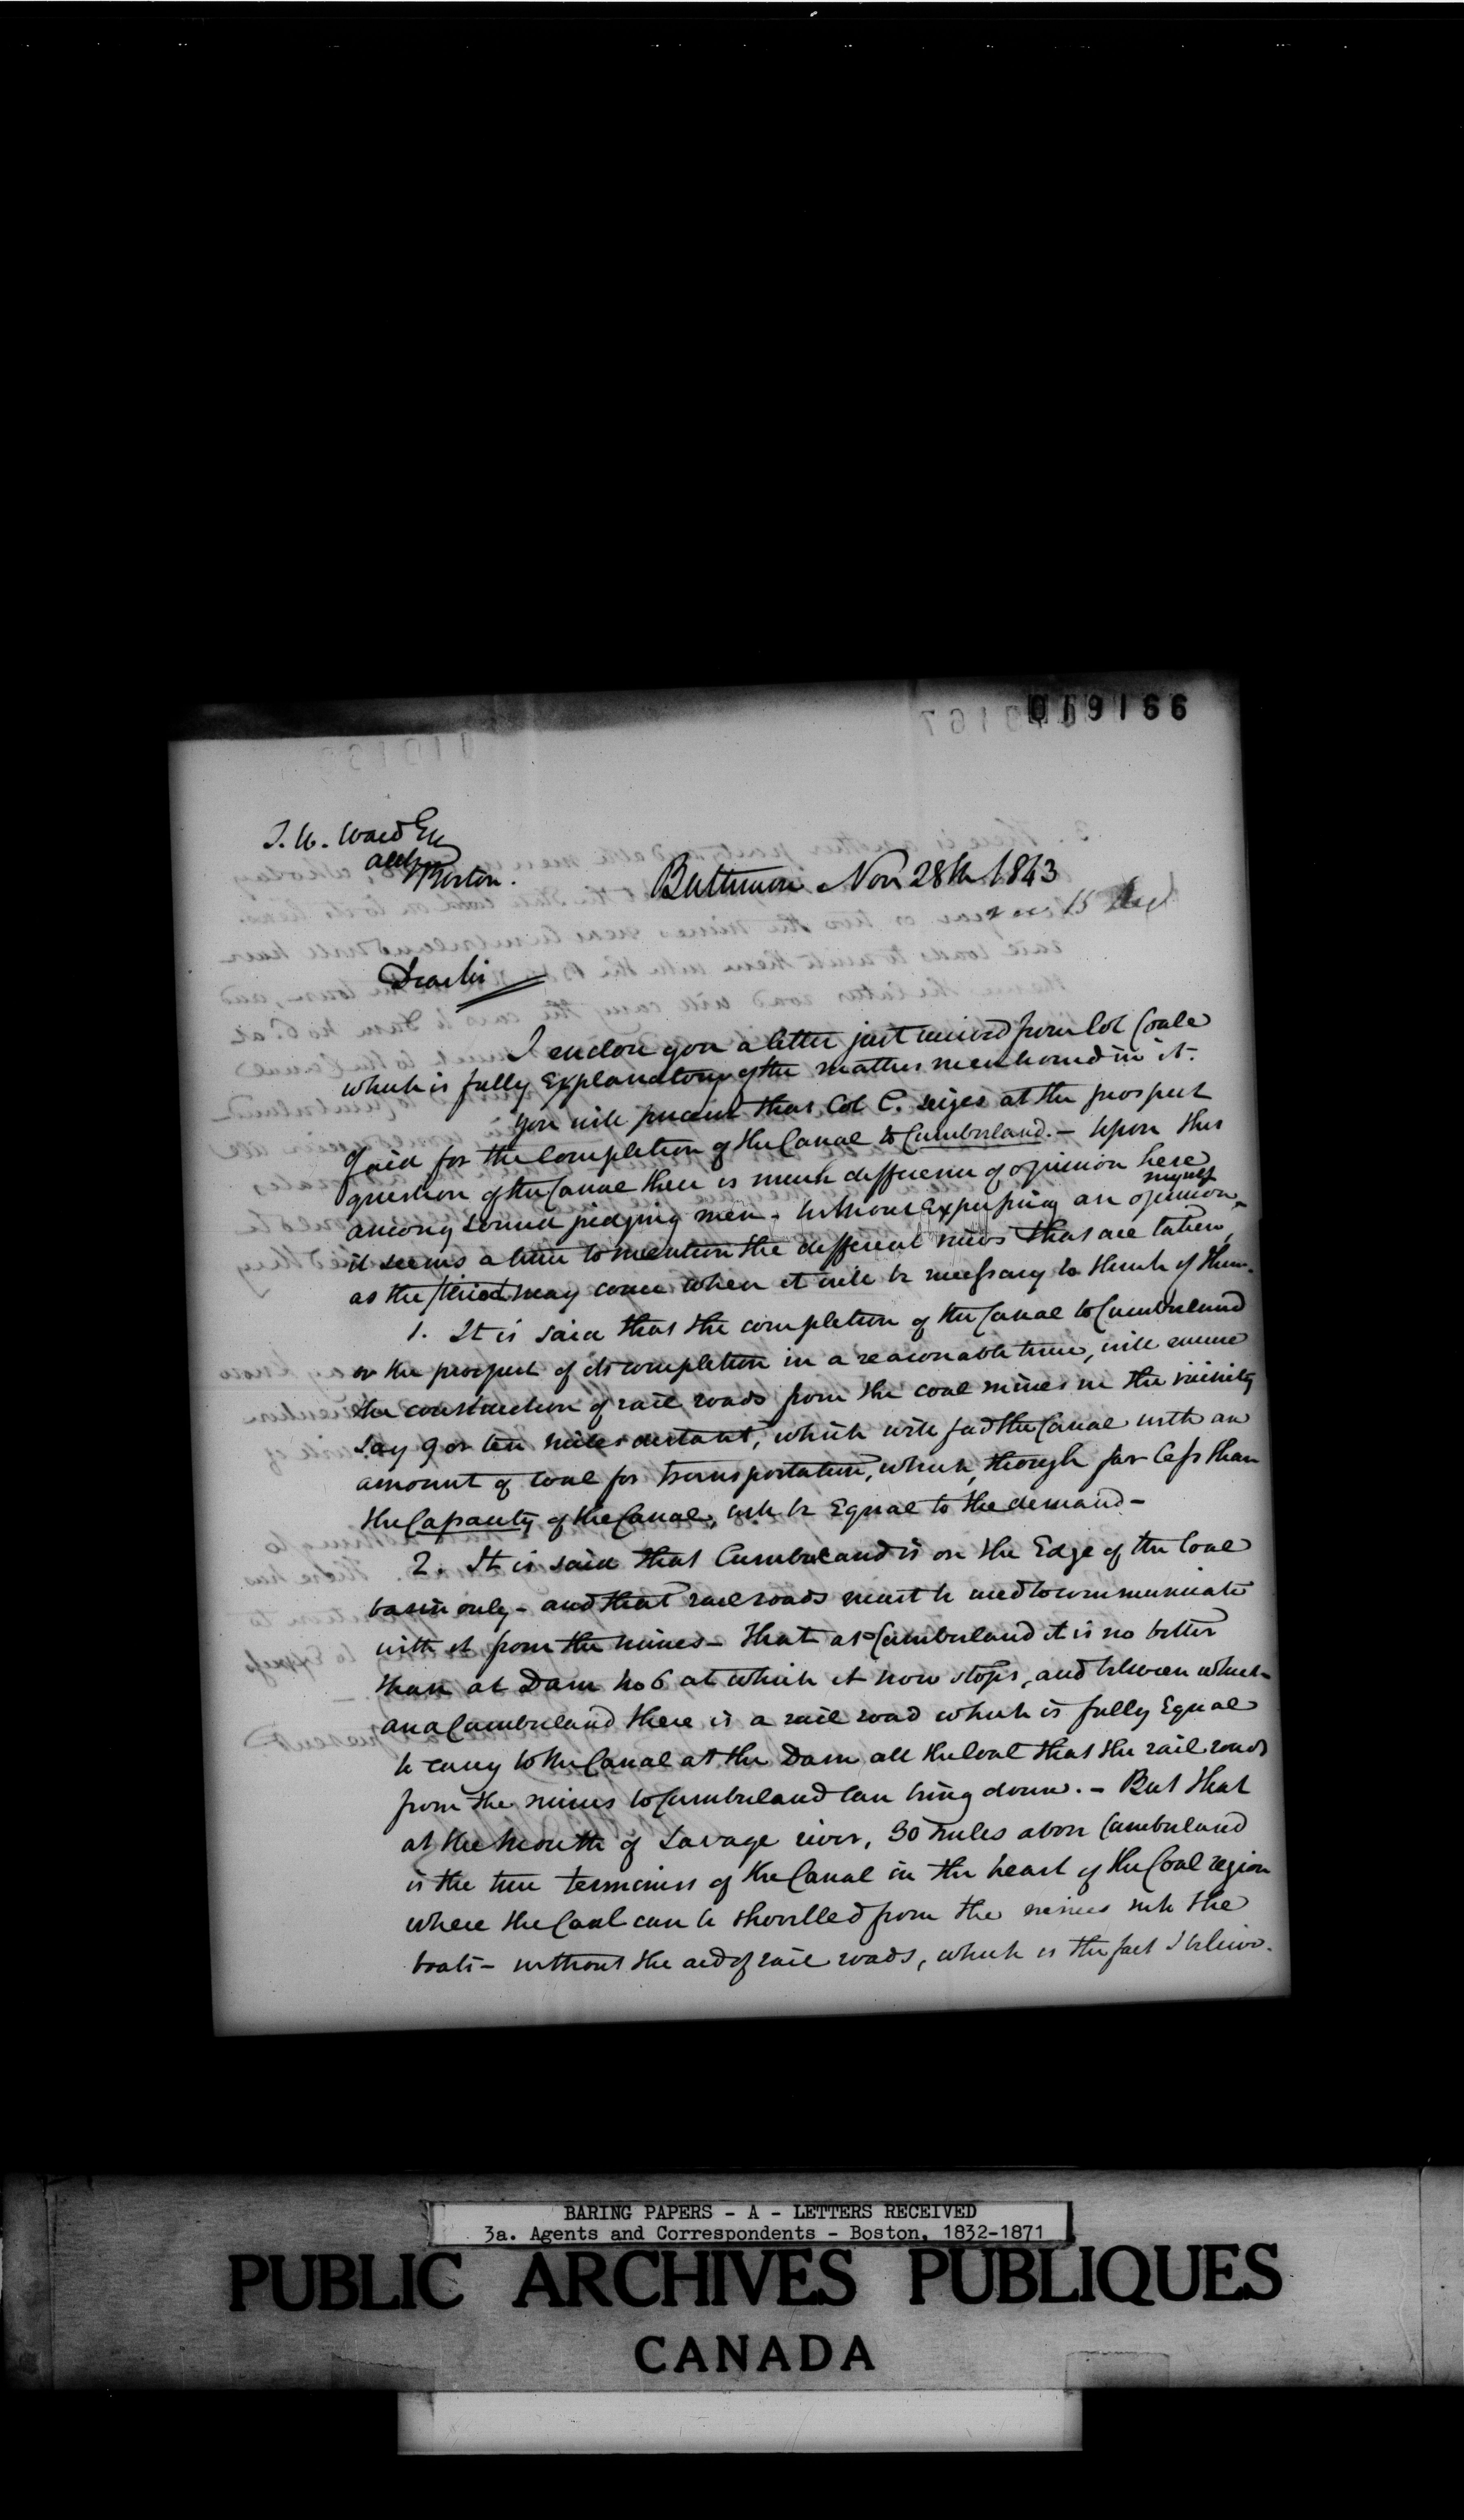 019166
T. W. Ward Esq
Boston.
Baltimore Nov 28th 1843
Dear Sir
I enclose you a letter just received from Col Coale
which is fully Explanatory of the matters mentioned in it.
You will perceive that Col C. seizes at the prospect
of aid for the Completion of the Canal to Cumberland. - Upon this
question of the Canal there is much difference of opinion here
among sound judging men. Without Expressing an opinion myself
it seems as well to mention the different views that are taken,
as the period may come when it will be necessary to think of them.
1. It is said that the completion of the Canal to Cumberland
or the prospect of its completion in a reasonable time, will ensure
the construction of rail roads from the coal mines in the vicinity
say 9 or ten miles distant, which will feed the Canal with an
amount of coal for transportation, which, though far less than
the Capacity of the Canal, will be Equal to the demand -
2. It is said that Cumberland is on the Edge of the Coal
basin only - and that rail roads must be used to communicate
with it from the mines - That at Cumberland it is no better
than at Dam No 6 at which it now stops, and between which
and Cumberland there is a rail road which is fully Equal
to carry to the Canal at the Dam all the Coal that the rail roads
from the mines to Cumberland can bring down. - But that
at the mouth of Savage river, 30 miles above Cumberland
is the true terminus of the Canal in the heart of the Coal region
where the Coal can be shovelled from the mines into the
boats - without the aid of rail roads, which is the fact I believe.
BARING PAPERS - A - LETTERS RECEIVED
3a. Agents and Correspondents - Boston, 1832-1871
PUBLIC ARCHIVES PUBLIQUES
CANADA